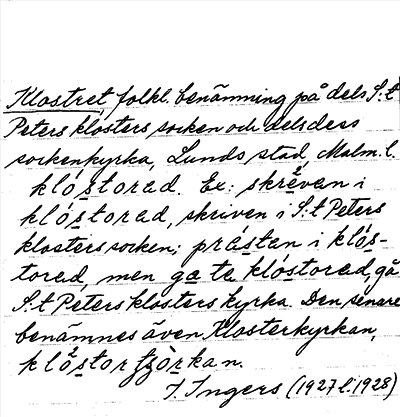 Klostret, folkl. benämning på dels S:t
Peters klosters socken och dels dess
sockenkyrka, Lunds stad, Malm. l.
klóstorad. Ex: skrèven i
klóstorad, skriven i S:t Peters
klosters socken; prástan i klós-
torad, men ga te klóstorad, gå
S:t Peters klosters kyrka. Den senare
benämnes även Klosterkyrkan,
I. Ingers (1927 l. 1928)